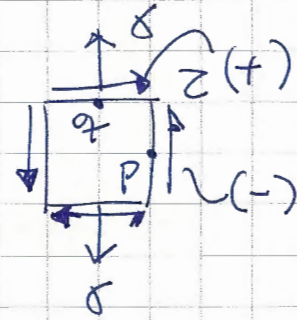 σ
τ (+)
q
p
(-)
σ